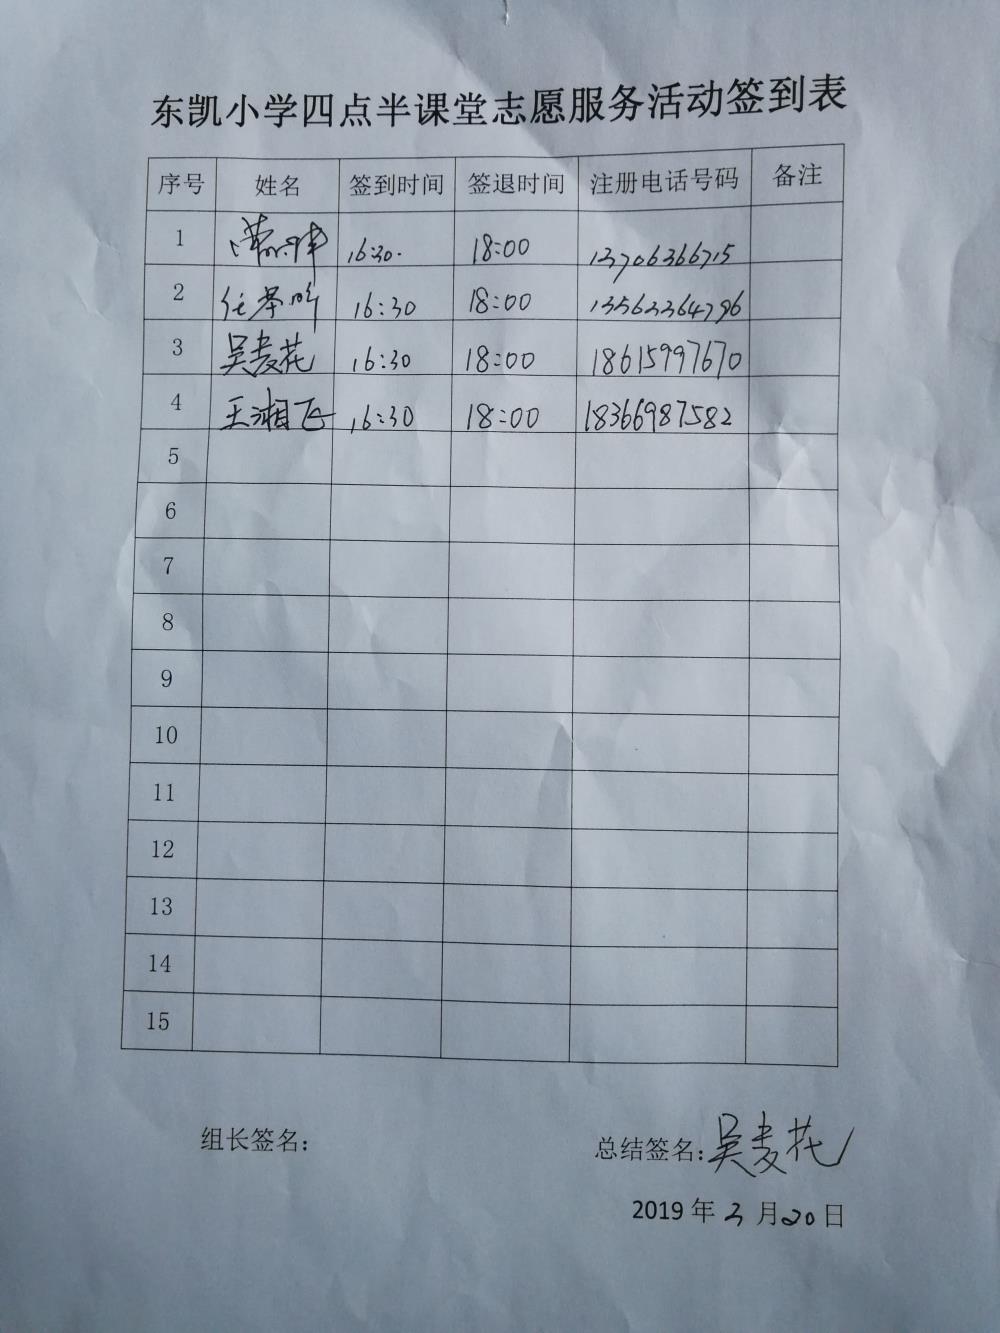 东凯小学四点半课堂志愿服务活动签到表
序号 姓名 签到时间 签退时间 注册电话号码 备注
1 16:30. 18:00 13706366715
2 16:30 18:00 13563364796
3 吴麦花 16:30 18:00 18615997670
4 王湘飞 16:30 18:00 18366987582
5
6
7
8
9
10
11
12
13
14
15
组长签名: 总结签名:吴麦花
2019 年 3 月 20 日